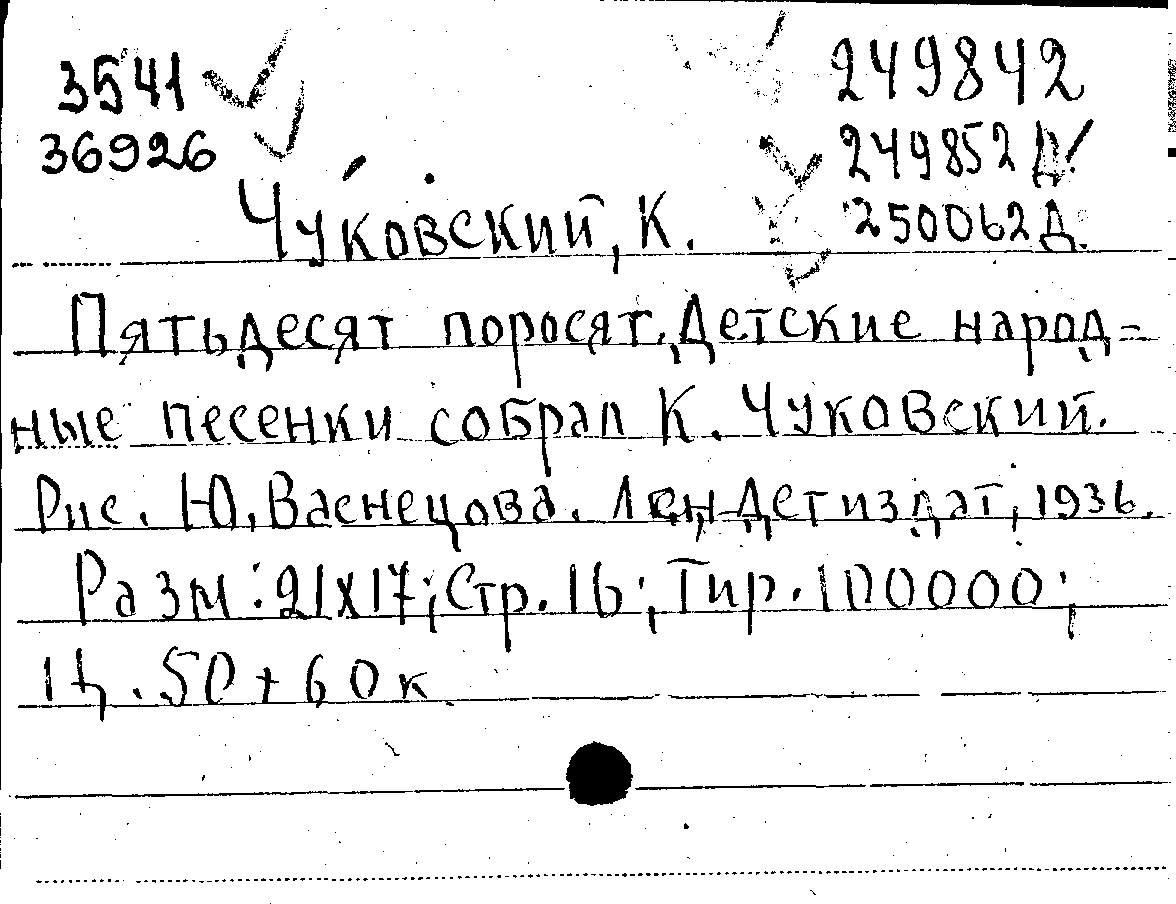 3541 249842
36926 249852 Д!
Чуковский, К. 250062 Д.
Пятьдесят поросят. Детские народ=
ные песенки собрал К. Чуковский.
Рис. Ю. Васнецова. Лен, Детиздат, 1936.
Разм: 21х17; Стр. 16; Тир. 100000;
Ц. 50 + 60 к